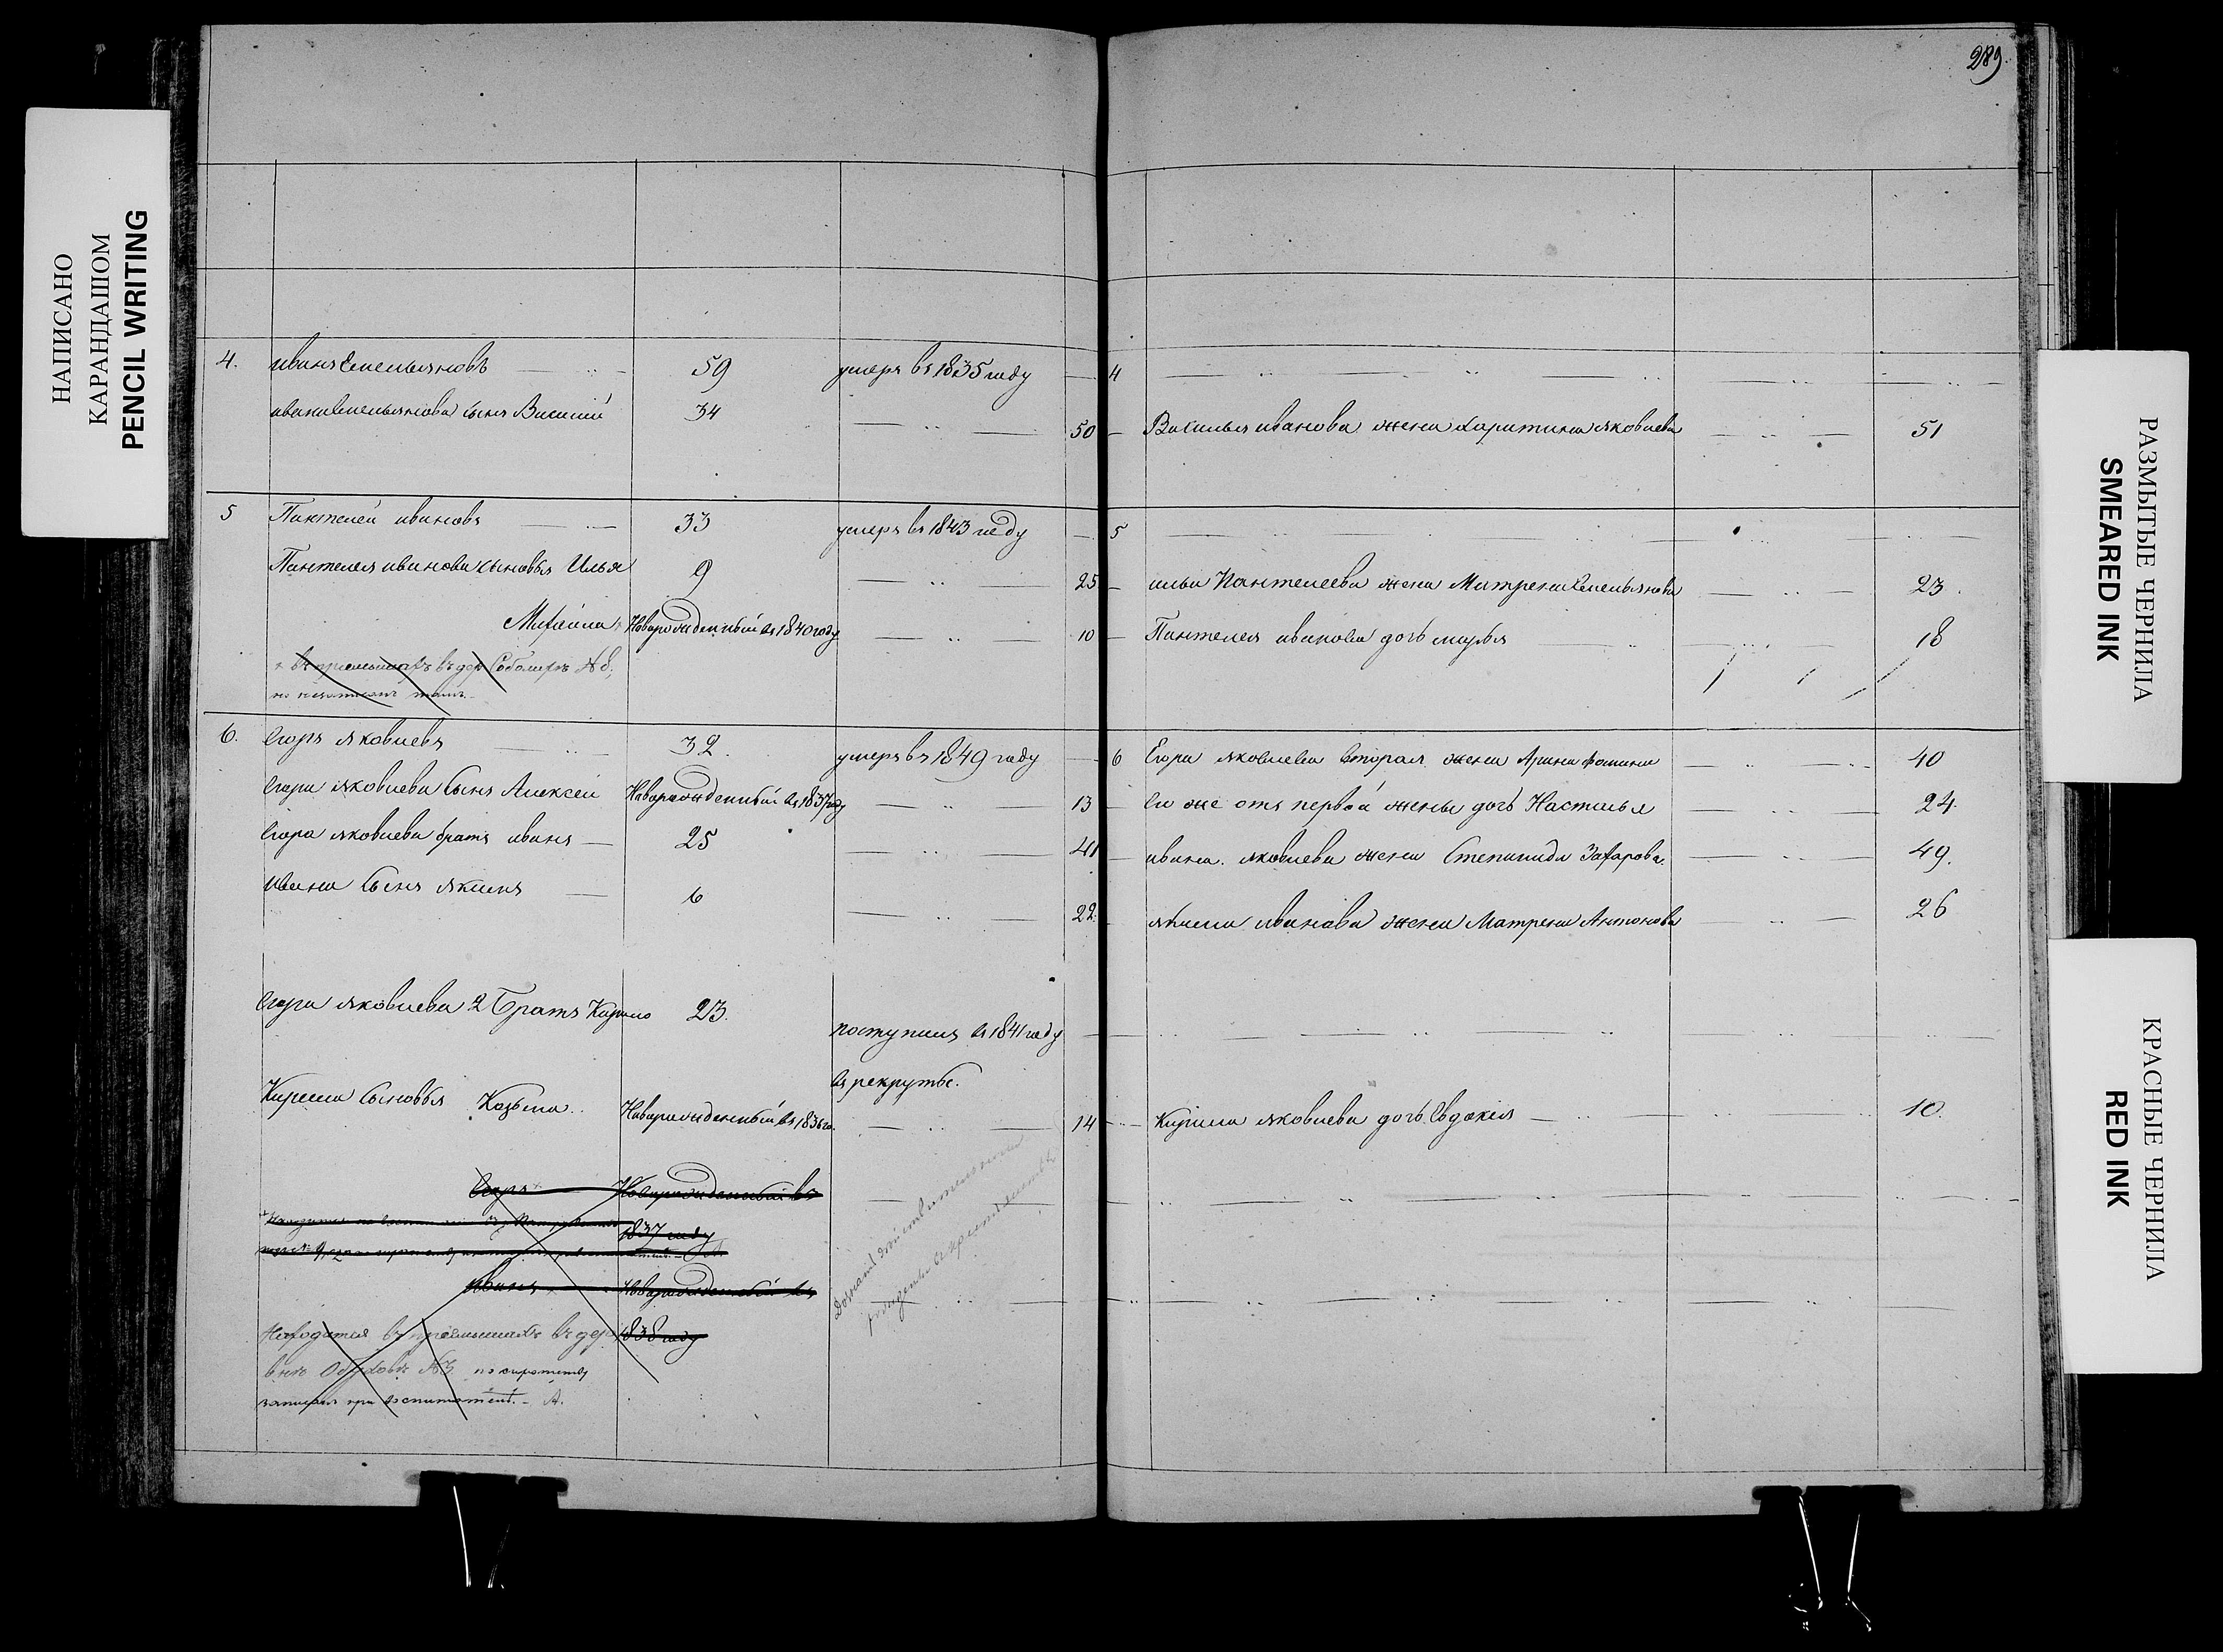 НАПИСАНО
КАРАНДАШОМ
PENCIL WRITING
4. иванъ Емельяновъ 59 умеръ въ 1835 году
ивана Емельянова сынъ Василий 34 50
5 Пантелей ивановъ 33 умеръ въ 1843 году
Пантелея иванова сыновья Илья 9 25
Михайла Новорожденный въ 1840 году 10
+ въ въ дер. № 8,
6. Егоръ яковлевъ 32. умеръ въ 1849 году
Егора яковлева сынъ Алексей Новорожденный въ 1837 году 13
Егора яковлева братъ иванъ 25 41
ивана сынъ якимъ 6 22.
Егора яковлева 2 братъ Кирило 23. поступилъ въ 1841 году
въ рекруты.
Кирила сыновья Козьма Новорожденный въ 1836 го. 14
Егоръ Новорожденный въ
1837 году
иванъ Новорожденный въ
Находится въ приемышахъ въ дере 1838 году
вне № 3 по сиротству
записанъ при воспитател. - А.
289.
4
Василья иванова жена Харитина яковлева 51
5
ильи Пантелеева жена Матрена Емельянова 23.
Пантелея иванова дочь марья 18
6 Егора яковлева вторая жена Арина Фомина 40
Ево же отъ первой жены дочь Настасья 24.
ивана яковлева жена Степанида Захарова. 49.
якима иванова жена Матрена Антонова 26
Кирила яковлева дочь Евдокия 10.
РАЗМЫТЫЕ ЧЕРНИЛА
SMEARED INK
КРАСНЫЕ ЧЕРНИЛА
RED INK